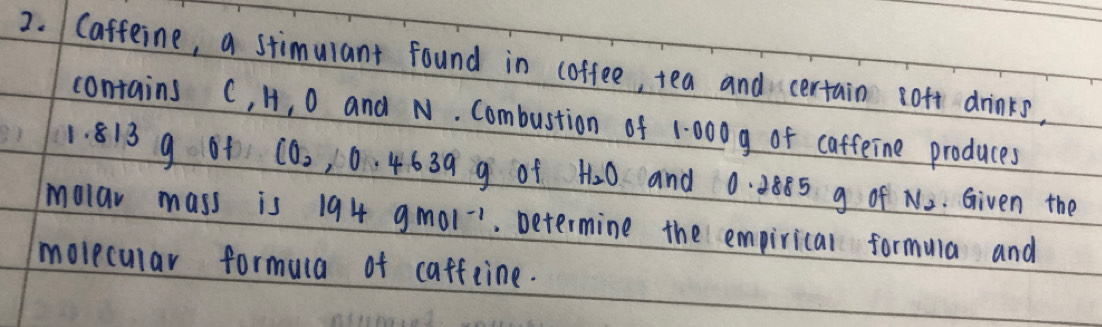 2. Caffeine, a stimulant found in coffee, tea and certain soft drinks,
contains C, H, O and N. Combustion of 1.000g of caffeine produces
1.813 g of CO₂, 0.4639 g of H₂O and 0.2885 g of N₂. Given the
molar mass is 194 gmol⁻¹. Determine the empirical formula and
molecular formula of caffeine.